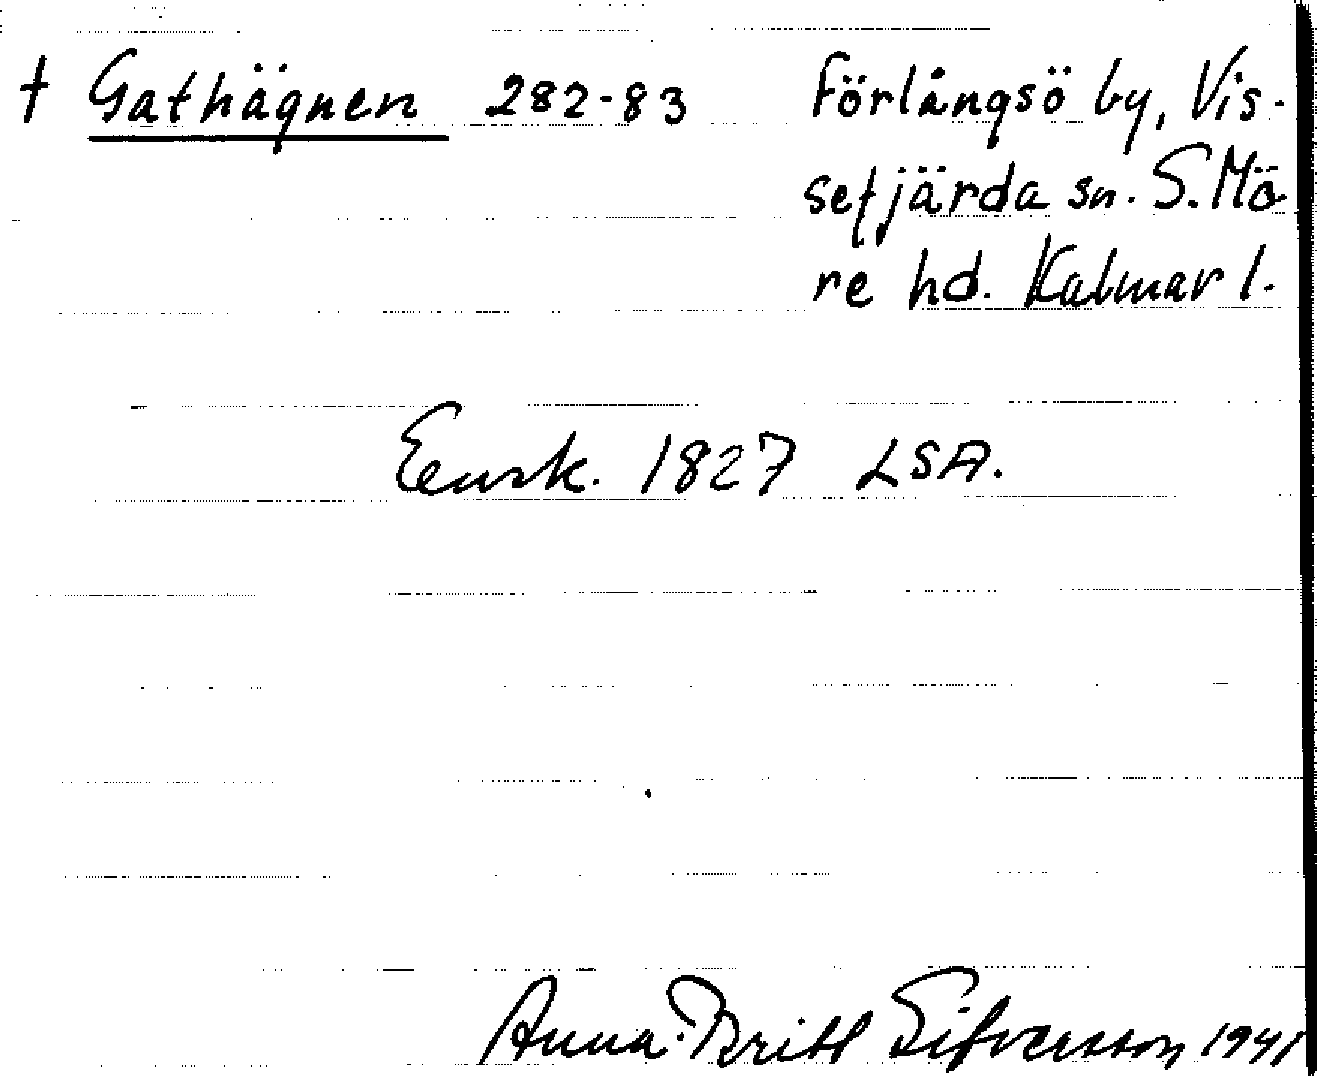 † Gathägnen 282-83 Förlångsö by, Vis-
sefjärda sn. S. Mö
re hd. Kalmar l.
Ensk. 1827 LSA.
Anna-Britt Sifversson 1941